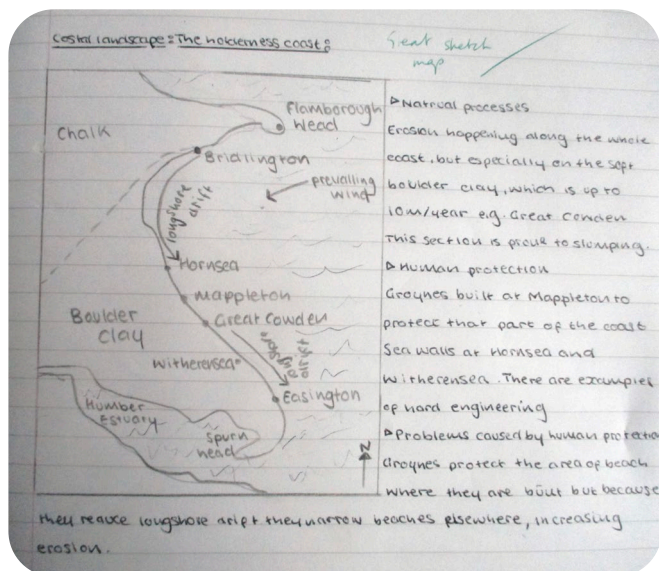 Costal landscape: The holderness coast:
Great sketch
map
Flamborough
Head
Chalk
Bridlington
prevailing
wind
longshore
drift
Hornsea
Mappleton
Great Cowden
Boulder
clay
longshore
drift
Witherensea
Easington
Humber
Estuary
Spurn
head
N
Natrual processes
Erosion happening along the whole
coast, but especially on the soft
boulder clay, which is up to
10m/year e.g. Great Cowden
This section is proue to slumping.
Human protection
Groynes built at Mappleton to
protect that part of the coast
Sea walls at Hornsea and
Witherensea. There are examples
of hard engineering
Problems caused by human protectio
Groynes protect the area of beach
where they are built but because
they reduce longshore drift they narrow beaches elsewhere, increasing
erosion.